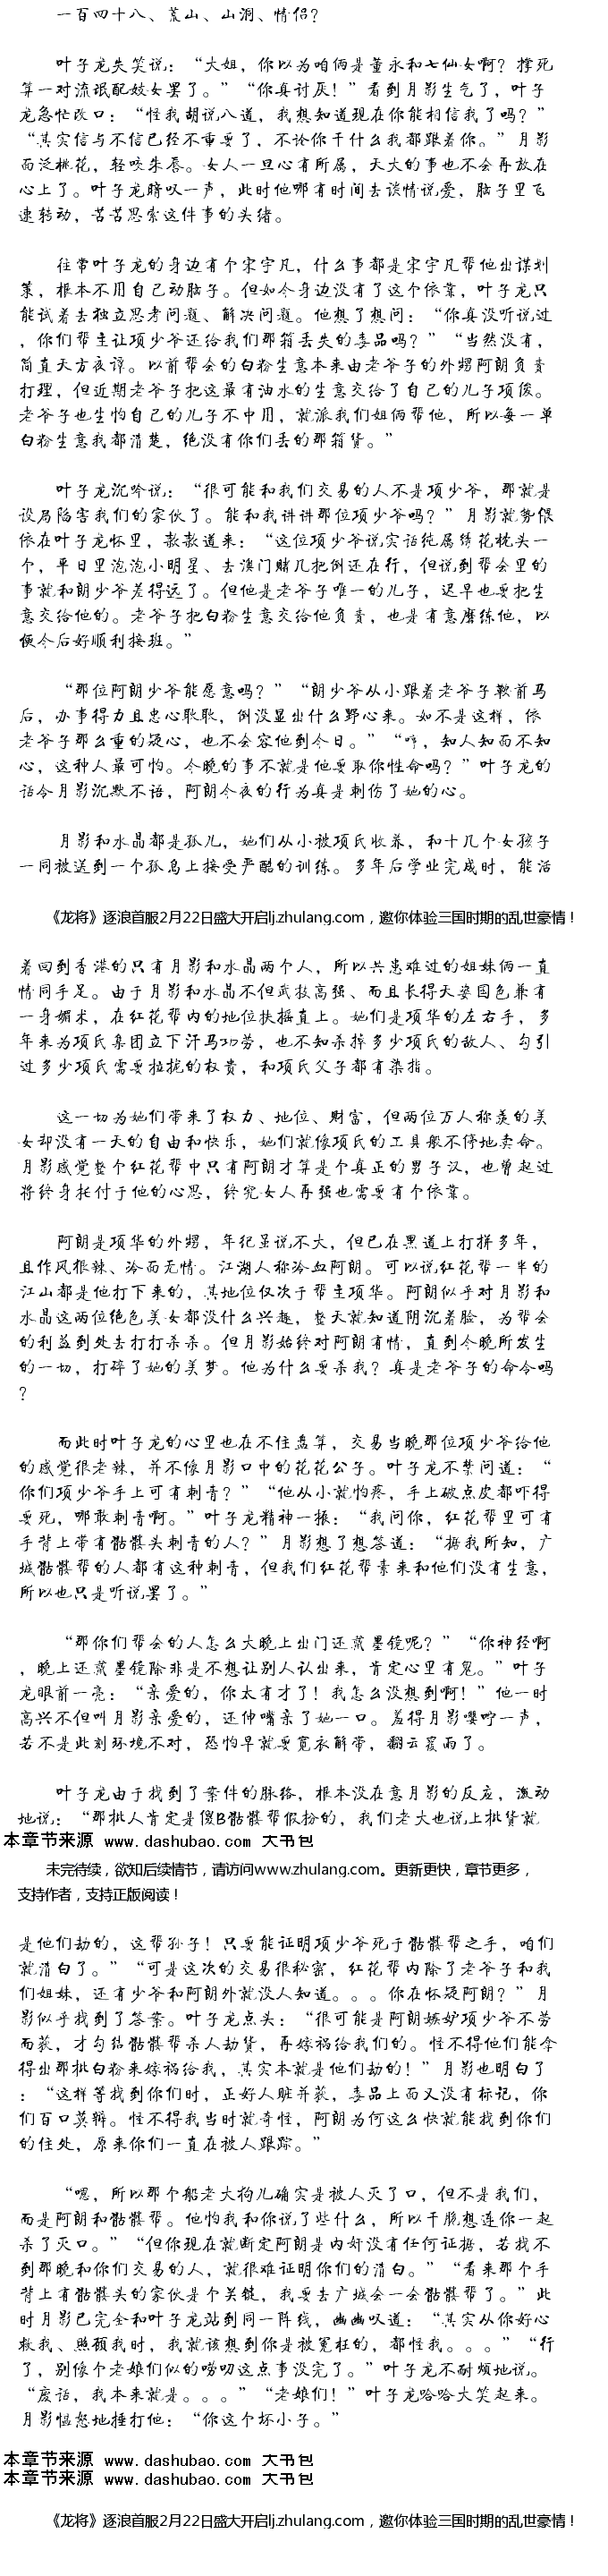 一百四十八、荒山、山洞、情侣？
叶子龙失笑说：“大姐，你以为咱俩是董永和七仙女啊？撑死
算一对流氓配妓女罢了。”“你真讨厌！”看到月影生气了，叶子
龙急忙改口：“怪我胡说八道，我想知道现在你能相信我了吗？”
“其实信与不信已经不重要了，不论你干什么我都跟着你。”月影
面泛桃花，轻咬朱唇。女人一旦心有所属，天大的事也不会再放在
心上了。叶子龙暗叹一声，此时他哪有时间去谈情说爱，脑子里飞
速转动，苦苦思索这件事的头绪。
往常叶子龙的身边有个宋宇凡，什么事都是宋宇凡帮他出谋划
策，根本不用自己动脑子。但如今身边没有了这个依靠，叶子龙只
能试着去独立思考问题、解决问题。他想了想问：“你真没听说过
，你们帮主让项少爷还给我们那箱丢失的毒品吗？”“当然没有，
简直天方夜谭。以前帮会的白粉生意本来由老爷子的外甥阿朗负责
打理，但近期老爷子把这最有油水的生意交给了自己的儿子项俊。
老爷子也生怕自己的儿子不中用，就派我们姐俩帮他，所以每一单
白粉生意我都清楚，绝没有你们丢的那箱货。”
叶子龙沉吟说：“很可能和我们交易的人不是项少爷，那就是
设局陷害我们的家伙了。能和我讲讲那位项少爷吗？”月影就势偎
依在叶子龙怀里，款款道来：“这位项少爷说实话纯属绣花枕头一
个，平日里泡泡小明星、去澳门赌几把倒还在行，但说到帮会里的
事就和朗少爷差得远了。但他是老爷子唯一的儿子，迟早也要把生
意交给他的。老爷子把白粉生意交给他负责，也是有意磨练他，以
便今后好顺利接班。”
“那位阿朗少爷能愿意吗？”“朗少爷从小跟着老爷子鞍前马
后，办事得力且忠心耿耿，倒没显出什么野心来。如不是这样，依
老爷子那么重的疑心，也不会容他到今日。”“哼，知人知面不知
心，这种人最可怕。今晚的事不就是他要取你性命吗？”叶子龙的
话令月影沉默不语，阿朗今夜的行为真是刺伤了她的心。
月影和水晶都是孤儿，她们从小被项氏收养，和十几个女孩子
一同被送到一个孤岛上接受严酷的训练。多年后学业完成时，能活
《龙将》逐浪首服2月22日盛大开启lj.zhulang.com，邀你体验三国时期的乱世豪情！
着回到香港的只有月影和水晶两个人，所以共患难过的姐妹俩一直
情同手足。由于月影和水晶不但武技高强、而且长得天姿国色兼有
一身媚术，在红花帮内的地位扶摇直上。她们是项华的左右手，多
年来为项氏集团立下汗马功劳，也不知杀掉多少项氏的敌人、勾引
过多少项氏需要拉拢的权贵，和项氏父子都有染指。
这一切为她们带来了权力、地位、财富，但两位万人称羡的美
女却没有一天的自由和快乐，她们就像项氏的工具般不停地卖命。
月影感觉整个红花帮中只有阿朗才算是个真正的男子汉，也曾起过
将终身托付于他的心思，终究女人再强也需要有个依靠。
阿朗是项华的外甥，年纪虽说不大，但已在黑道上打拼多年，
且作风狠辣、冷面无情。江湖人称冷血阿朗。可以说红花帮一半的
江山都是他打下来的，其地位仅次于帮主项华。阿朗似乎对月影和
水晶这两位绝色美女都没什么兴趣，整天就知道阴沉着脸，为帮会
的利益到处去打打杀杀。但月影始终对阿朗有情，直到今晚所发生
的一切，打碎了她的美梦。他为什么要杀我？真是老爷子的命令吗
？
而此时叶子龙的心里也在不住盘算，交易当晚那位项少爷给他
的感觉很老辣，并不像月影口中的花花公子。叶子龙不禁问道：“
你们项少爷手上可有刺青？”“他从小就怕疼，手上破点皮都吓得
要死，哪敢刺青啊。”叶子龙精神一振：“我问你，红花帮里可有
手背上带有骷髅头刺青的人？”月影想了想答道：“据我所知，广
城骷髅帮的人都有这种刺青，但我们红花帮素来和他们没有生意，
所以也只是听说罢了。”
“那你们帮会的人怎么大晚上出门还戴墨镜呢？”“你神经啊
，晚上还戴墨镜除非是不想让别人认出来，肯定心里有鬼。”叶子
龙眼前一亮：“亲爱的，你太有才了！我怎么没想到啊！”他一时
高兴不但叫月影亲爱的，还伸嘴亲了她一口。羞得月影嘤咛一声，
若不是此刻环境不对，恐怕早就要宽衣解带，翻云覆雨了。
叶子龙由于找到了案件的脉络，根本没在意月影的反应，激动
地说：“那批人肯定是傻B骷髅帮假扮的，我们老大也说上批货就
本章节来源 www.dashubao.com 大书包
未完待续，欲知后续情节，请访问www.zhulang.com。更新更快，章节更多，
支持作者，支持正版阅读！
是他们劫的，这帮孙子！只要能证明项少爷死于骷髅帮之手，咱们
就清白了。”“可是这次的交易很秘密，红花帮内除了老爷子和我
们姐妹，还有少爷和阿朗外就没人知道。。。你在怀疑阿朗？”月
影似乎找到了答案。叶子龙点头：“很可能是阿朗嫉妒项少爷不劳
而获，才勾结骷髅帮杀人劫货，再嫁祸给我们的。怪不得他们能拿
得出那批白粉来嫁祸给我，其实本就是他们劫的！”月影也明白了
：“这样等找到你们时，正好人赃并获，毒品上面又没有标记，你
们百口莫辩。怪不得我当时就奇怪，阿朗为何这么快就能找到你们
的住处，原来你们一直在被人跟踪。”
“嗯，所以那个船老大狗儿确实是被人灭了口，但不是我们，
而是阿朗和骷髅帮。他怕我和你说了些什么，所以干脆想连你一起
杀了灭口。”“但你现在就断定阿朗是内奸没有任何证据，若找不
到那晚和你们交易的人，就很难证明你们的清白。”“看来那个手
背上有骷髅头的家伙是个关键，我要去广城会一会骷髅帮了。”此
时月影已完全和叶子龙站到同一阵线，幽幽叹道：“其实从你好心
救我、照顾我时，我就该想到你是被冤枉的，都怪我。。。”“行
了，别像个老娘们似的唠叨这点事没完了。”叶子龙不耐烦地说。
“废话，我本来就是。。。”“老娘们！”叶子龙哈哈大笑起来。
月影愠怒地捶打他：“你这个坏小子。”
本章节来源 www.dashubao.com 大书包
本章节来源 www.dashubao.com 大书包
《龙将》逐浪首服2月22日盛大开启lj.zhulang.com，邀你体验三国时期的乱世豪情！